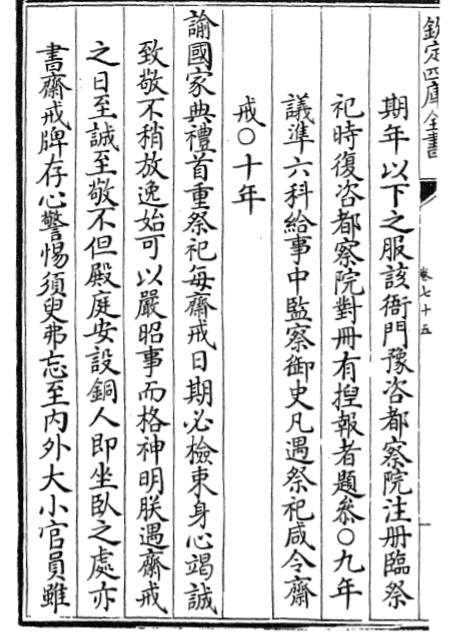 欽定四庫全書
卷七十五
期年以下之服該衙門豫咨都察院注冊臨祭
祀時復咨都察院對冊有捏報者題叅○九年
議準六科給事中監察御史凡遇祭祀咸令齋
戒○十年
諭國家典禮首重祭祀每齋戒日期必檢束身心竭誠
致敬不稍放逸始可以嚴昭事而格神明朕遇齋戒
之日至誠至敬不但殿庭安設銅人即坐臥之處亦
書齋戒牌存心警惕須臾弗忘至内外大小官員雖